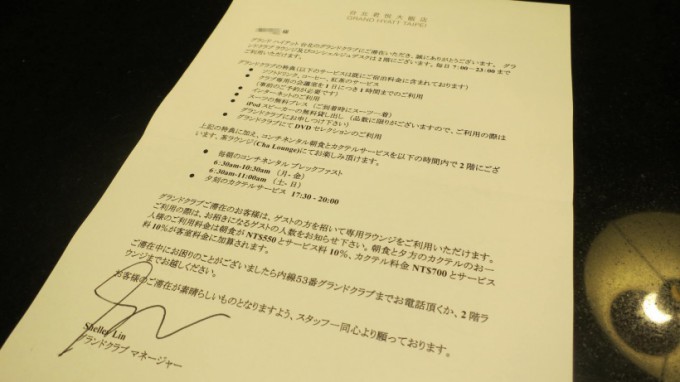 台北君悦大飯店
GRAND HYATT TAIPEI
様
グランド ハイアット 台北のグランドクラブにご滞在いただき、誠にありがとうございます。 グラ
ンドクラブ ラウンジ及びコンシェルジュデスクは 2 階にございます。毎日 7:00～23:00 まで
ご利用いただけます。
グランドクラブの特典 (以下のサービスは既にご宿泊料金に含まれております)
● ソフトドリンク、コーヒー、紅茶のサービス
● クラブ専用の会議室を 1 日につき 1 時間までのご利用
(事前のご予約が必要です)
● インターネットのご利用
● スーツの無料プレス (ご到着時にスーツ一着)
● iPod スピーカーの無料貸し出し (品数に限りがございますので、ご利用の際は
グランドクラブにお申しつけ下さい)
● グランドクラブにて DVD セレクションのご利用
上記の特典に加え、コンチネンタル朝食とカクテルサービスを以下の時間内で 2 階にござ
います、茶ラウンジ(Cha Lounge)にてお楽しみ頂けます。
● 毎朝のコンチネンタル ブレックファスト
6:30am-10:30am (月-金)
6:30am-11:00am (土-日)
● 夕刻のカクテルサービス 17:30 - 20:00
グランドクラブご滞在のお客様は、ゲストの方を招いて専用ラウンジをご利用いただけます。
ご利用の際は、お招きになるゲストの人数をお知らせ下さい。朝食と夕方のカクテルのお一
人様のご利用料金は朝食が NT$550 とサービス料 10%、カクテル料金 NT$700 とサービス
料 10%が客室料金に加算されます。
ご滞在中にお困りのことがございましたら内線 53 番グランドクラブまでお電話頂くか、2 階ラ
ウンジまでお越しください。
お客様のご滞在が素晴らしいものとなりますよう、スタッフ一同心より願っております。
Shelley Lin
グランドクラブ マネージャー